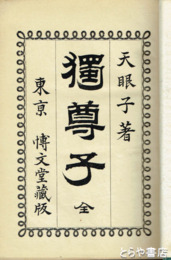 天眼子著
獨尊子 全
東京 博文堂藏版
とらや書店